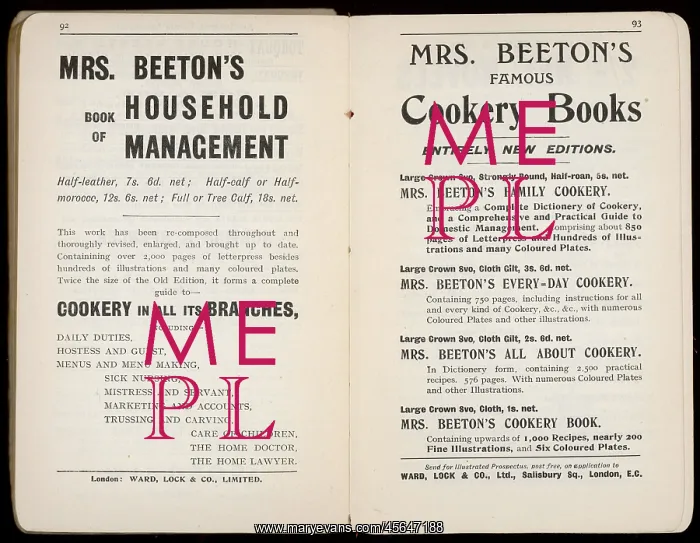 92
MRS. BEETON'S
BOOK OF HOUSEHOLD
MANAGEMENT
Half-leather, 7s. 6d. net; Half-calf or Half-
morocco, 12s. 6s. net; Full or Tree Calf, 18s. net.
This work has been re-composed throughout and
thoroughly revised, enlarged, and brought up to date.
Containining over 2,000 pages of letterpress besides
hundreds of illustrations and many coloured plates.
Twice the size of the Old Edition, it forms a complete
guide to—
COOKERY IN ALL ITS BRANCHES,
INCLUDING—
DAILY DUTIES,
HOSTESS AND GUEST,
MENUS AND MENU MAKING,
SICK NURSING,
MISTRESS AND SERVANT,
MARKETING AND ACCOUNTS,
TRUSSING AND CARVING,
CARE OF CHILDREN,
THE HOME DOCTOR,
THE HOME LAWYER.
London: WARD, LOCK & CO., LIMITED.
ME
PL
93
MRS. BEETON'S
FAMOUS
Cookery Books
ENTIRELY NEW EDITIONS.
Large Crown 8vo, Strongly Bound, Half-roan, 5s. net.
MRS. BEETON'S FAMILY COOKERY.
Embracing a Complete Dictionary of Cookery,
and a Comprehensive and Practical Guide to
Domestic Management. Comprising about 850
pages of Letterpress and Hundreds of Illus-
trations and many Coloured Plates.
Large Crown 8vo, Cloth Gilt, 3s. 6d. net.
MRS. BEETON'S EVERY=DAY COOKERY.
Containing 750 pages, including instructions for all
and every kind of Cookery, &c., &c., with numerous
Coloured Plates and other illustrations.
Large Crown 8vo, Cloth Gilt, 2s. 6d. net.
MRS. BEETON'S ALL ABOUT COOKERY.
In Dictionary form, containing 2,500 practical
recipes. 576 pages. With numerous Coloured Plates
and other Illustrations.
Large Crown 8vo, Cloth, 1s. net.
MRS. BEETON'S COOKERY BOOK.
Containing upwards of 1,000 Recipes, nearly 200
Fine Illustrations, and Six Coloured Plates.
Send for Illustrated Prospectus, post free, on application to
WARD, LOCK & CO., Ltd., Salisbury Sq., London, E.C.
ME
PL
www.maryevans.com/45647188